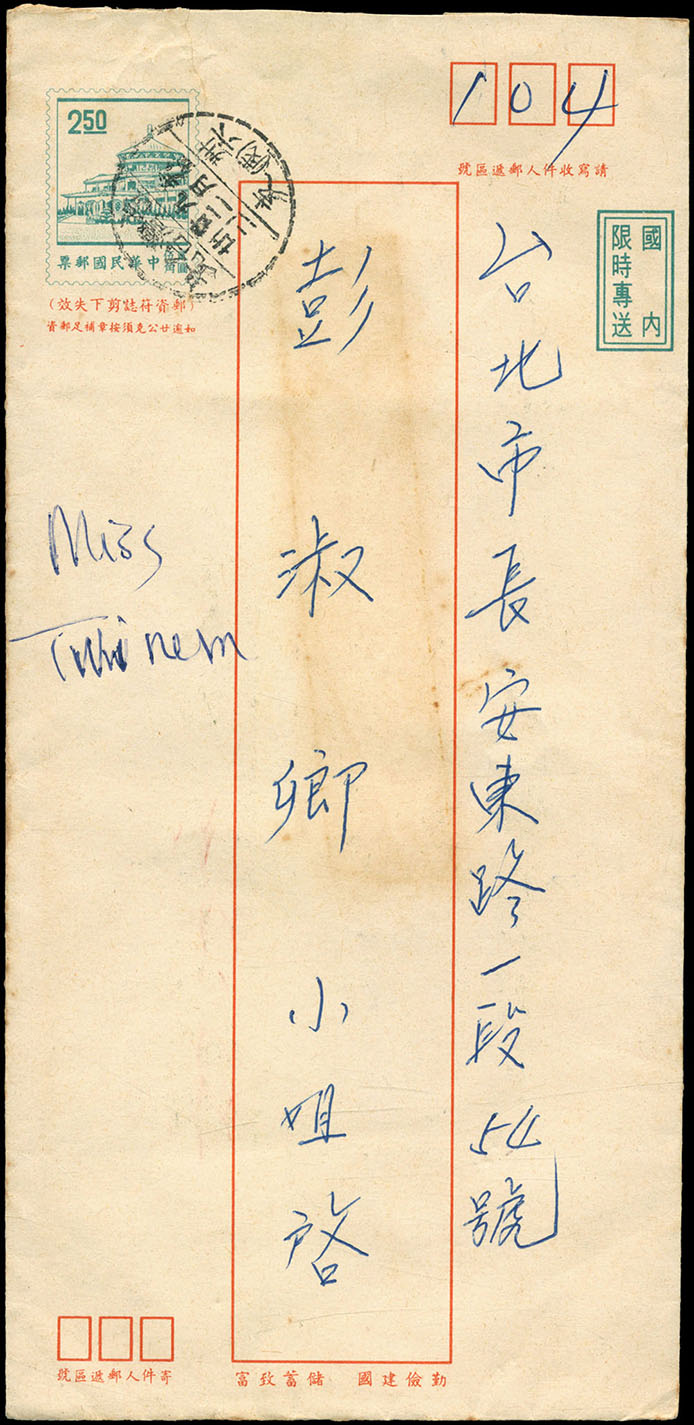 104
請寫收件人郵遞區號
國內
限時專送
台北市長安東路一段54號
彭淑卿小姐啓
250
中華民國郵票
(郵資符誌剪下失效)
如逾廿公克須按章補足郵資
Miss
寄件人郵遞區號
勤儉建國 儲蓄致富